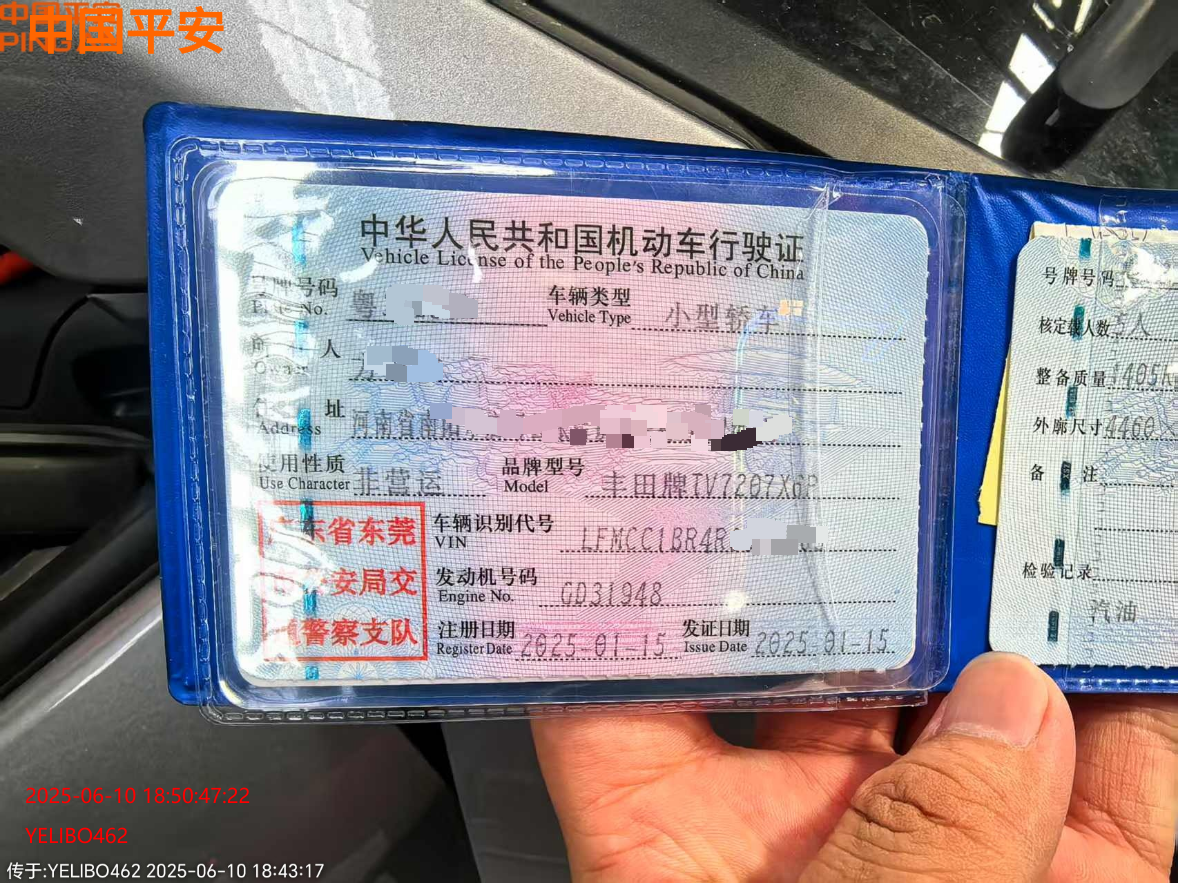 中国平安
中华人民共和国机动车行驶证
Vehicle License of the People's Republic of China
号码 粤 车辆类型 小型轿车
No. Vehicle Type
人
Owner
址 河南省南
Address
使用性质 非营运 品牌型号 丰田牌TV7207X6P
Use Character Model
广东省东莞
安局交
警察支队
车辆识别代号 LFMCC1BR4R
VIN
发动机号码 GD31948
Engine No.
注册日期 2025-01-15 发证日期 2025-01-15
Register Date Issue Date
号牌号码
核定载人数 5人
整备质量 1405
外廓尺寸 4460
备 注
检验记录
汽油
2025-06-10 18:50:47:22
YELIBO462
传于:YELIBO462 2025-06-10 18:43:17